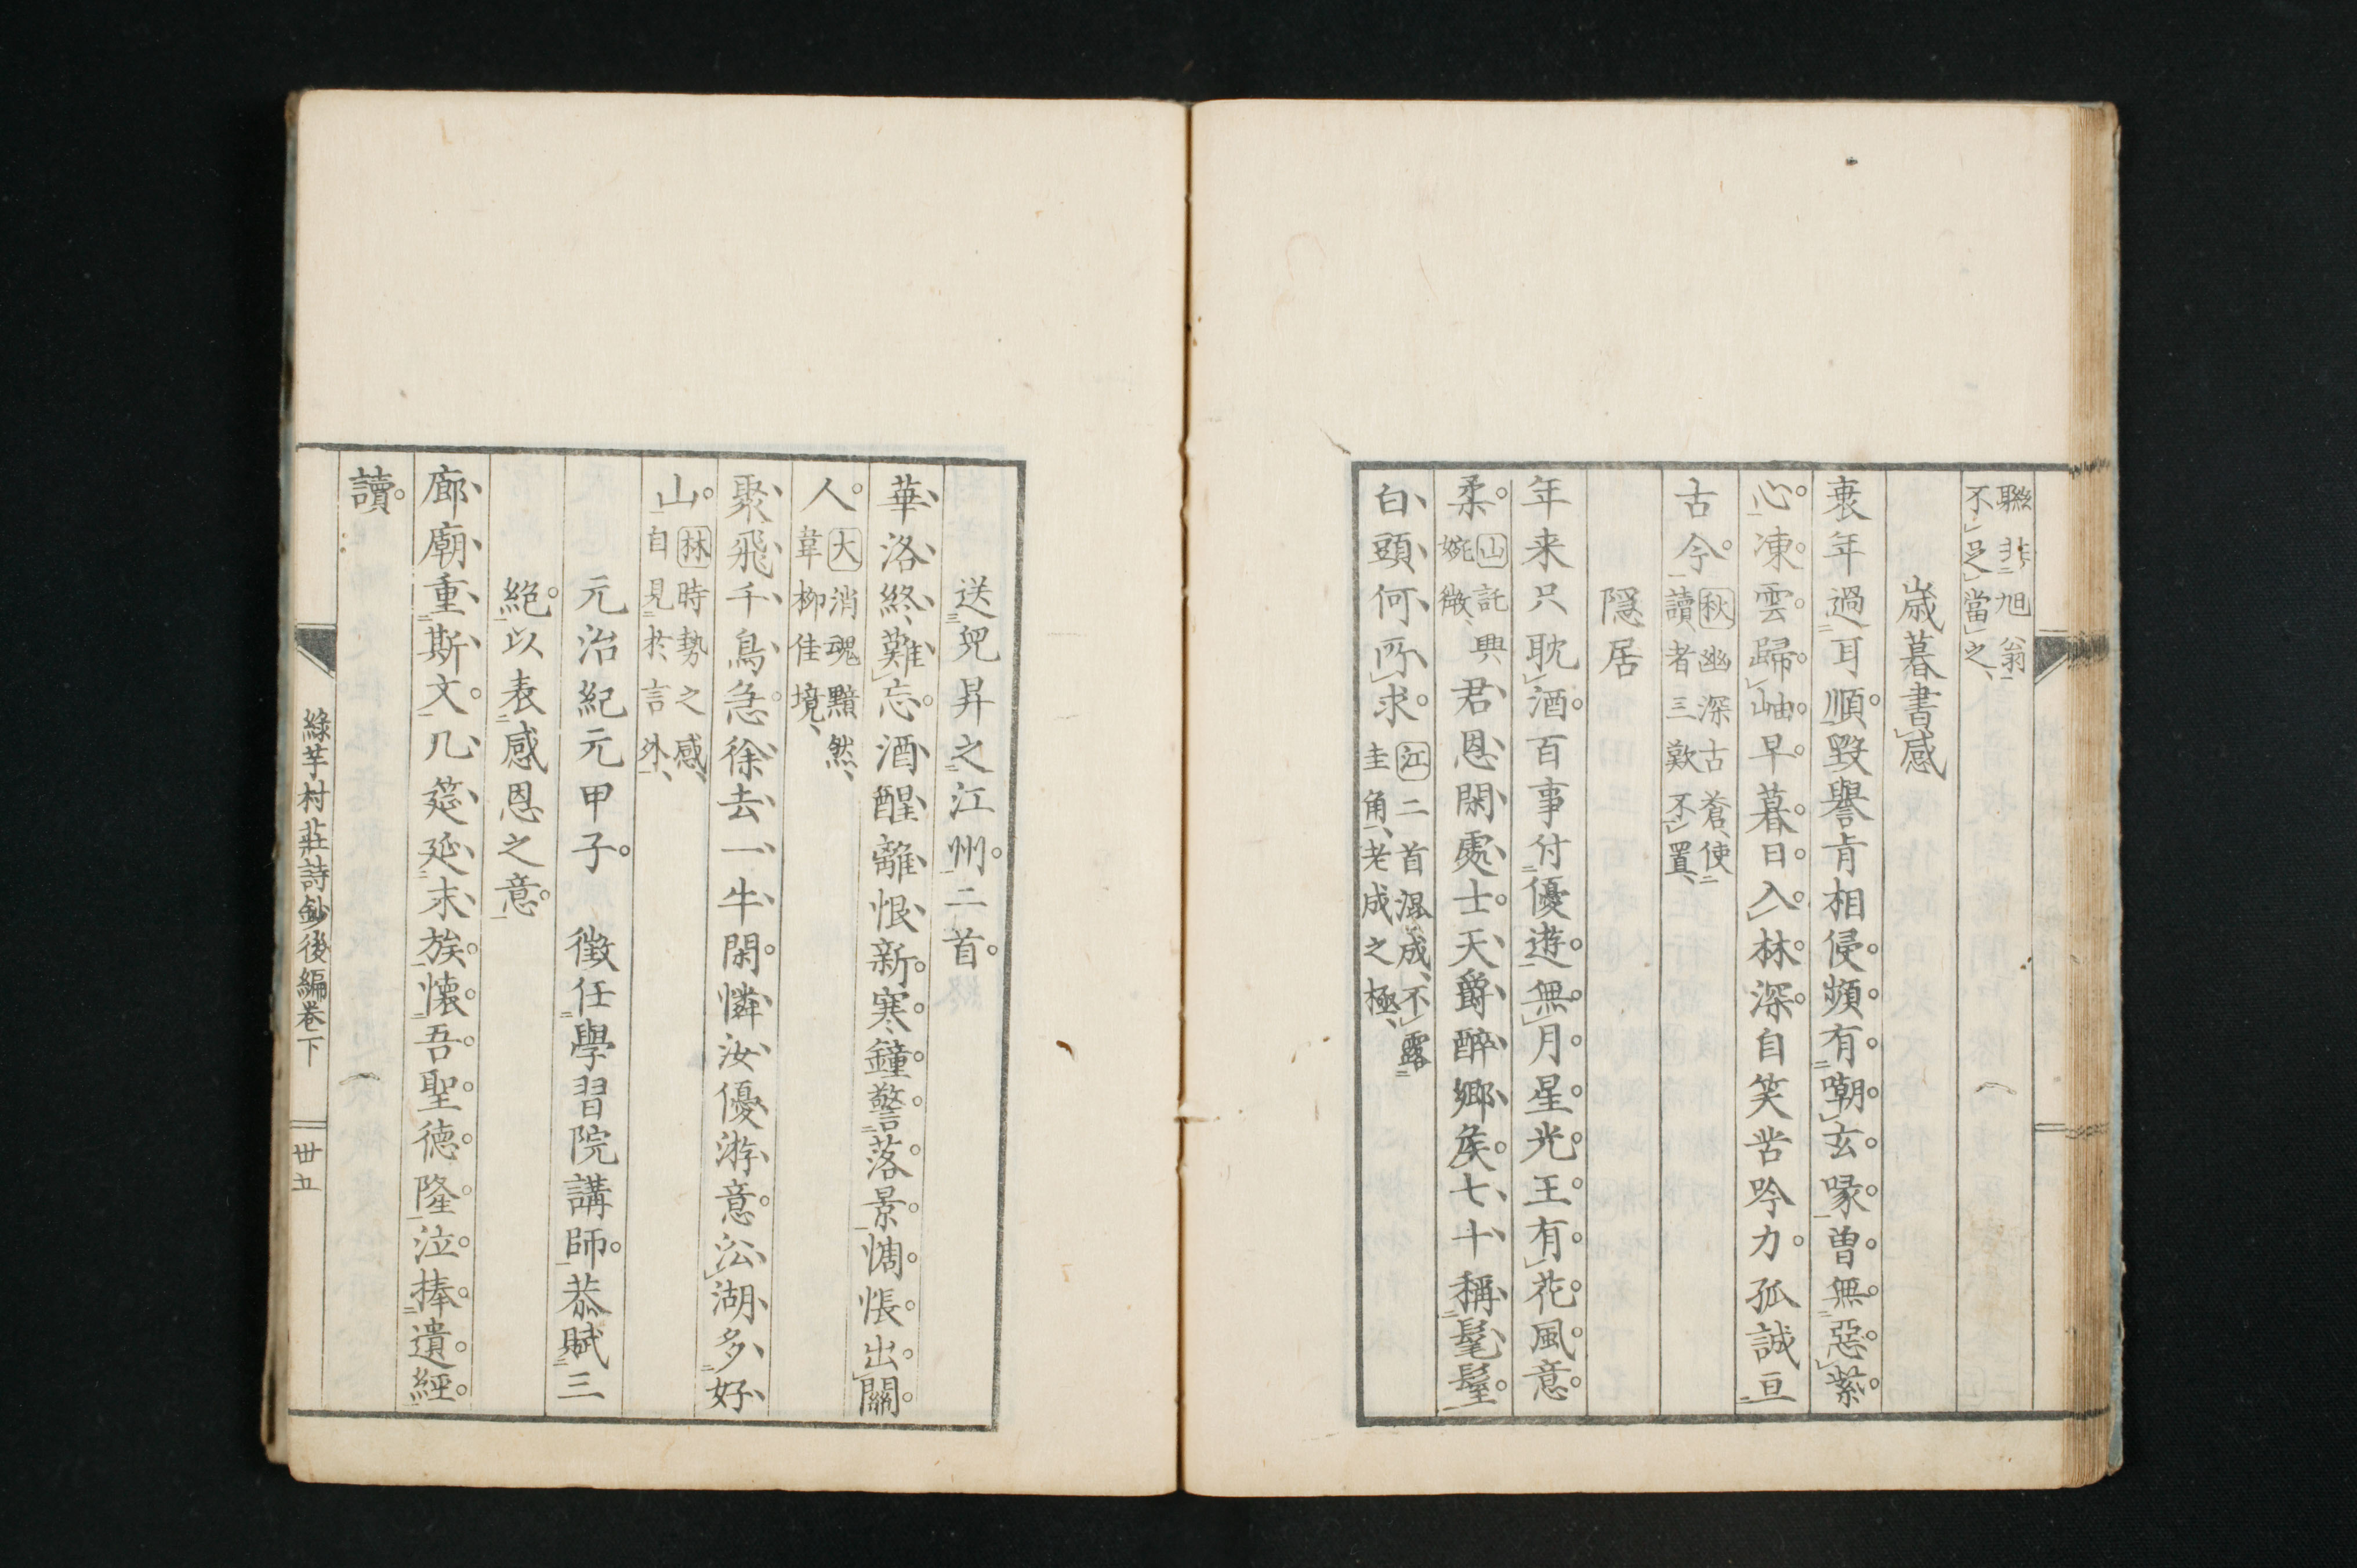 聯非旭翁
不足當之
歳暮書感
衰年過耳順毀譽肯相侵頻有嘲玄喙曽無惡紫
心凍雲歸岫早暮日入林深自笑苦吟力孤誠亘
古今
秋幽深古蒼使
讀者三歎不置
隠居
年来只耽酒百事付優遊無月星光王有花風意
柔
山託興
婉微
君恩閑處士天爵醉郷矦七十稱髦髦
白頭何所求
江二首渾成不露
圭角老成之極
送兕昇之江州二首
華洛終難忘酒醒離恨新寒鐘警落景惆悵出關
人
大消魂黯然
韋柳佳境
聚飛千鳥急徐去一牛閑憐汝優游意㳂湖多好
山
林時勢之感
自見於言外
元治紀元甲子徴任學習院講師恭賦三
絶以表感恩之意
廊廟重斯文几筵延末族懐吾聖徳隆泣捧遺經
讀
綠芋村莊詩鈔後編卷下
丗五